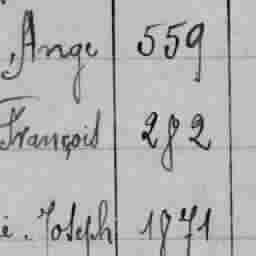 Ange 559
François 282
e. Joseph 1871